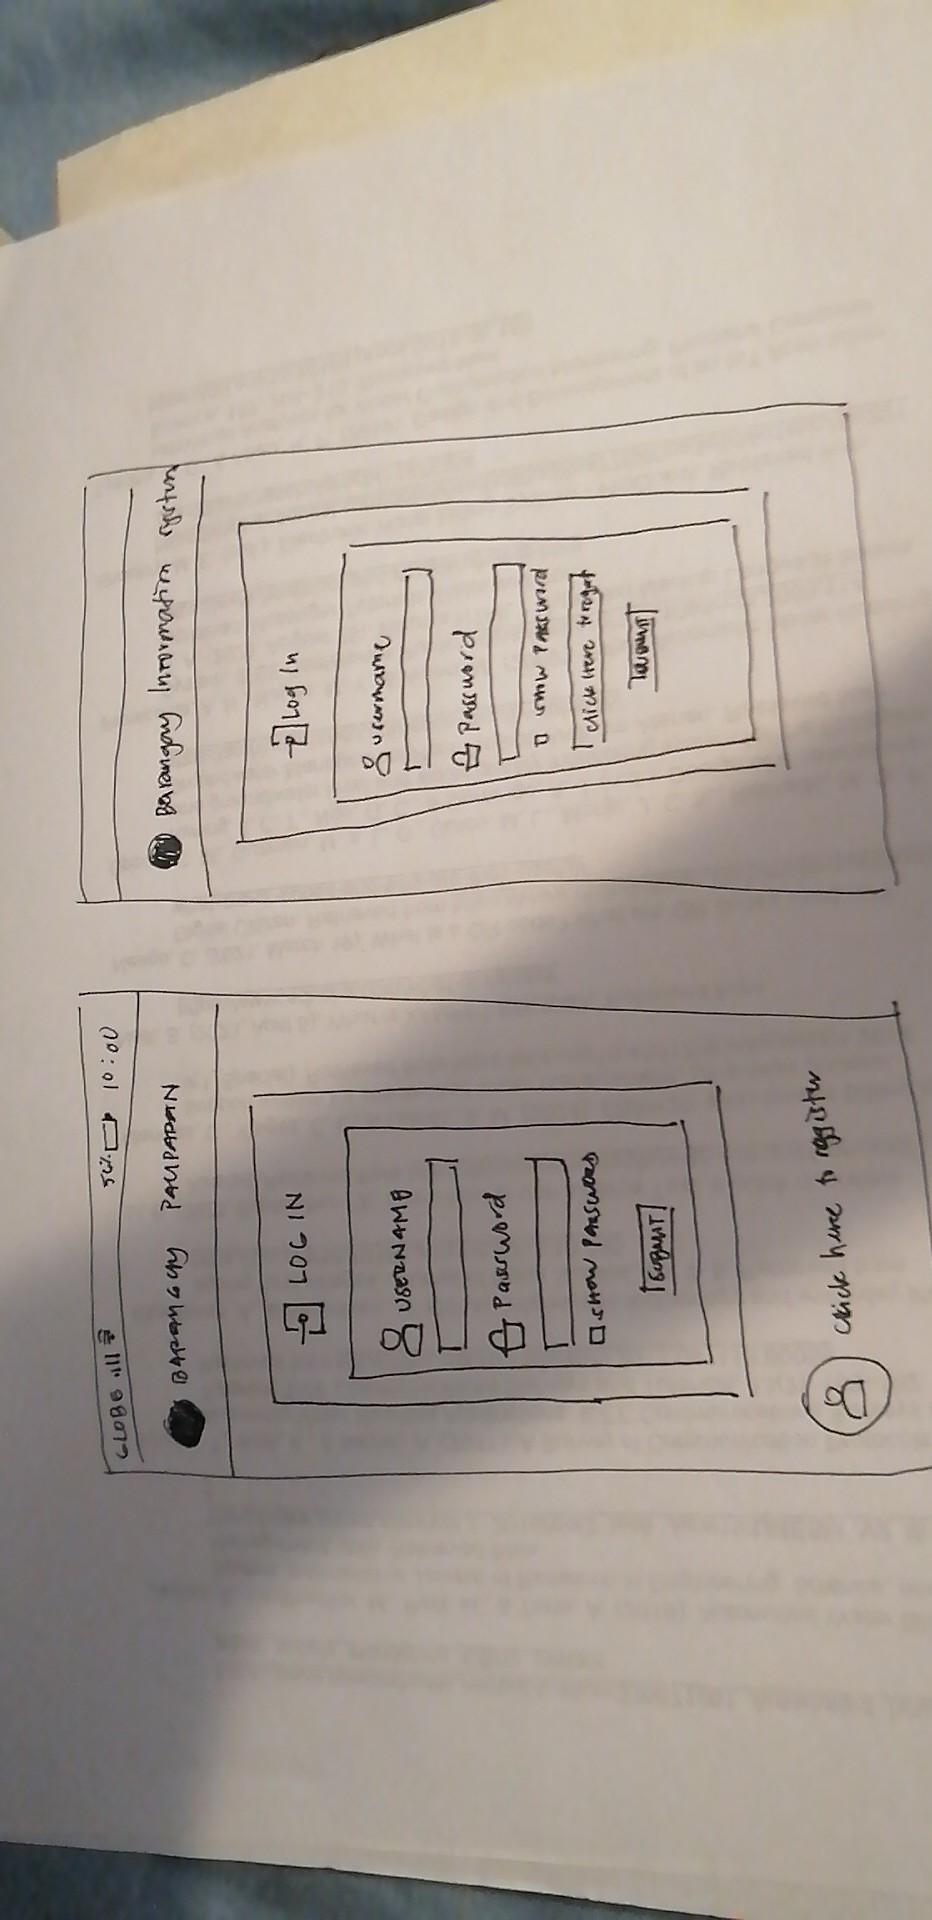 GLOBE 50% 10:00
BARANGAY PALIPARAN
LOG IN
USERNAME
Password
SHOW PASSWORD
SUBMIT
click here to register
Barangay Information system
Log In
username
Password
show PASSWORD
click Here to regist
SUBMIT